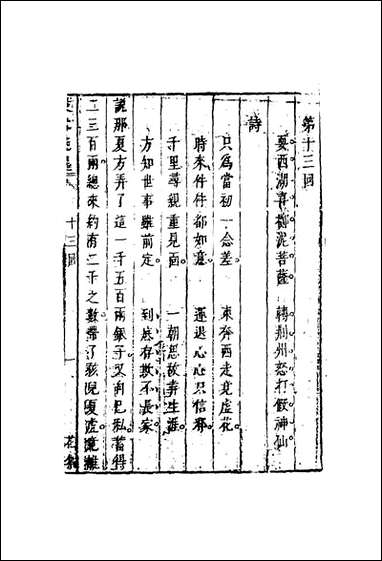 第十三回
耍西湖喜擲泥菩薩　轉荆州怒打假神仙
詩
只爲當初一念差　東奔西走竟虛花
時來件件都如意　運退心心只信邪
千里尋親重見面　一朝思故弃生涯
方知世事雖前定　到底存教不長家
說那夏方弄了這一千五百兩銀子又有自己私蓄得
二三百兩總來約有二千之數帶了孩兒夏虎竟離
十三回